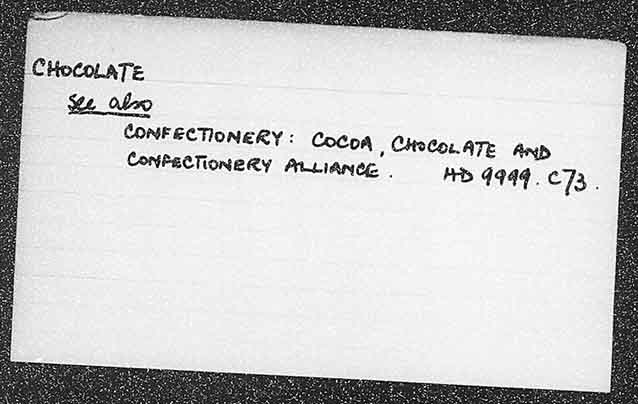 CHOCOLATE
see also
CONFECTIONERY: COCOA, CHOCOLATE AND
CONFECTIONERY ALLIANCE. HD 9999. C73.